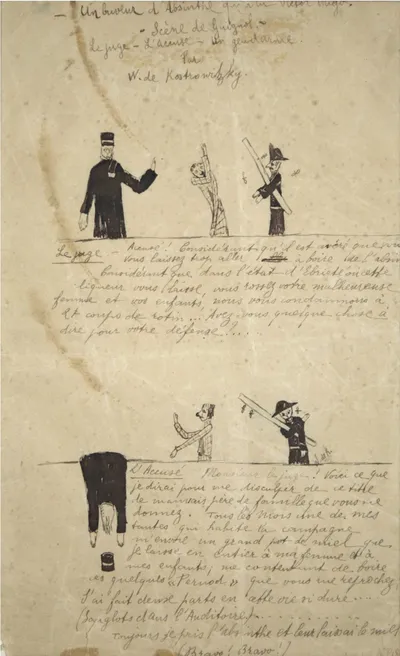 — Un buveur d'absinthe qui a lu Victor Hugo. —
- Scène de Guignol. -
Le juge - L'accusé - un gendarme.
Par
W. de Kostrowitzky.
Le juge. - Accusé! Considérant qu'il est avéré que
vous laissez trop aller à boire de l'absin
Considérant que dans l'état d'Ebriété où cette
liqueur vous laisse, vous rossez votre malheureuse
femme et vos enfants, nous vous condamnons à
coups de rotin... Avez-vous quelque chose à
dire pour votre défense?...
L'Accusé Monsieur le juge! Voici ce que
je dirai pour me disculper de ce titre
de mauvais père de famille que vous me
donnez. Tous les mois une de mes
tantes qui habite la campagne
m'envoie un grand pot de miel que
je laisse en entier à ma femme et à
mes enfants, me contentant de boire
ces quelques "Pernod," que vous me reprochez,
J'ai fait deux parts en cette vie si dure...
(Sanglots dans l'Auditoire)
Toujours j'ai pris l'absinthe et leur laissai le miel
(Bravo! Bravo!)